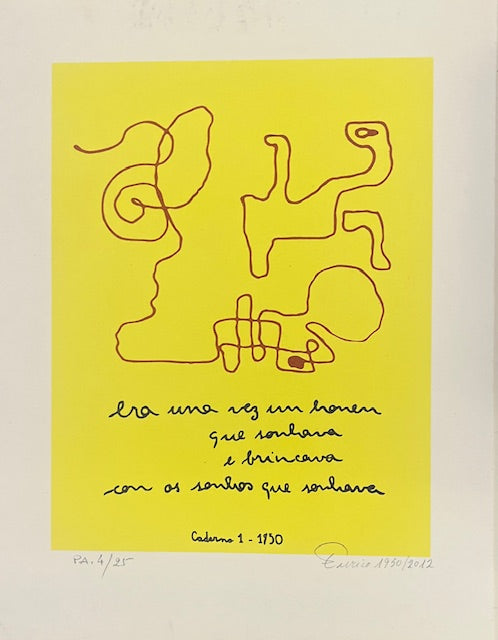 era uma vez um homem
que sonhava
e brincava
com os sonhos que sonhava
Caderno 1 - 1950
PA. 4/25
Eurico 1950/2012